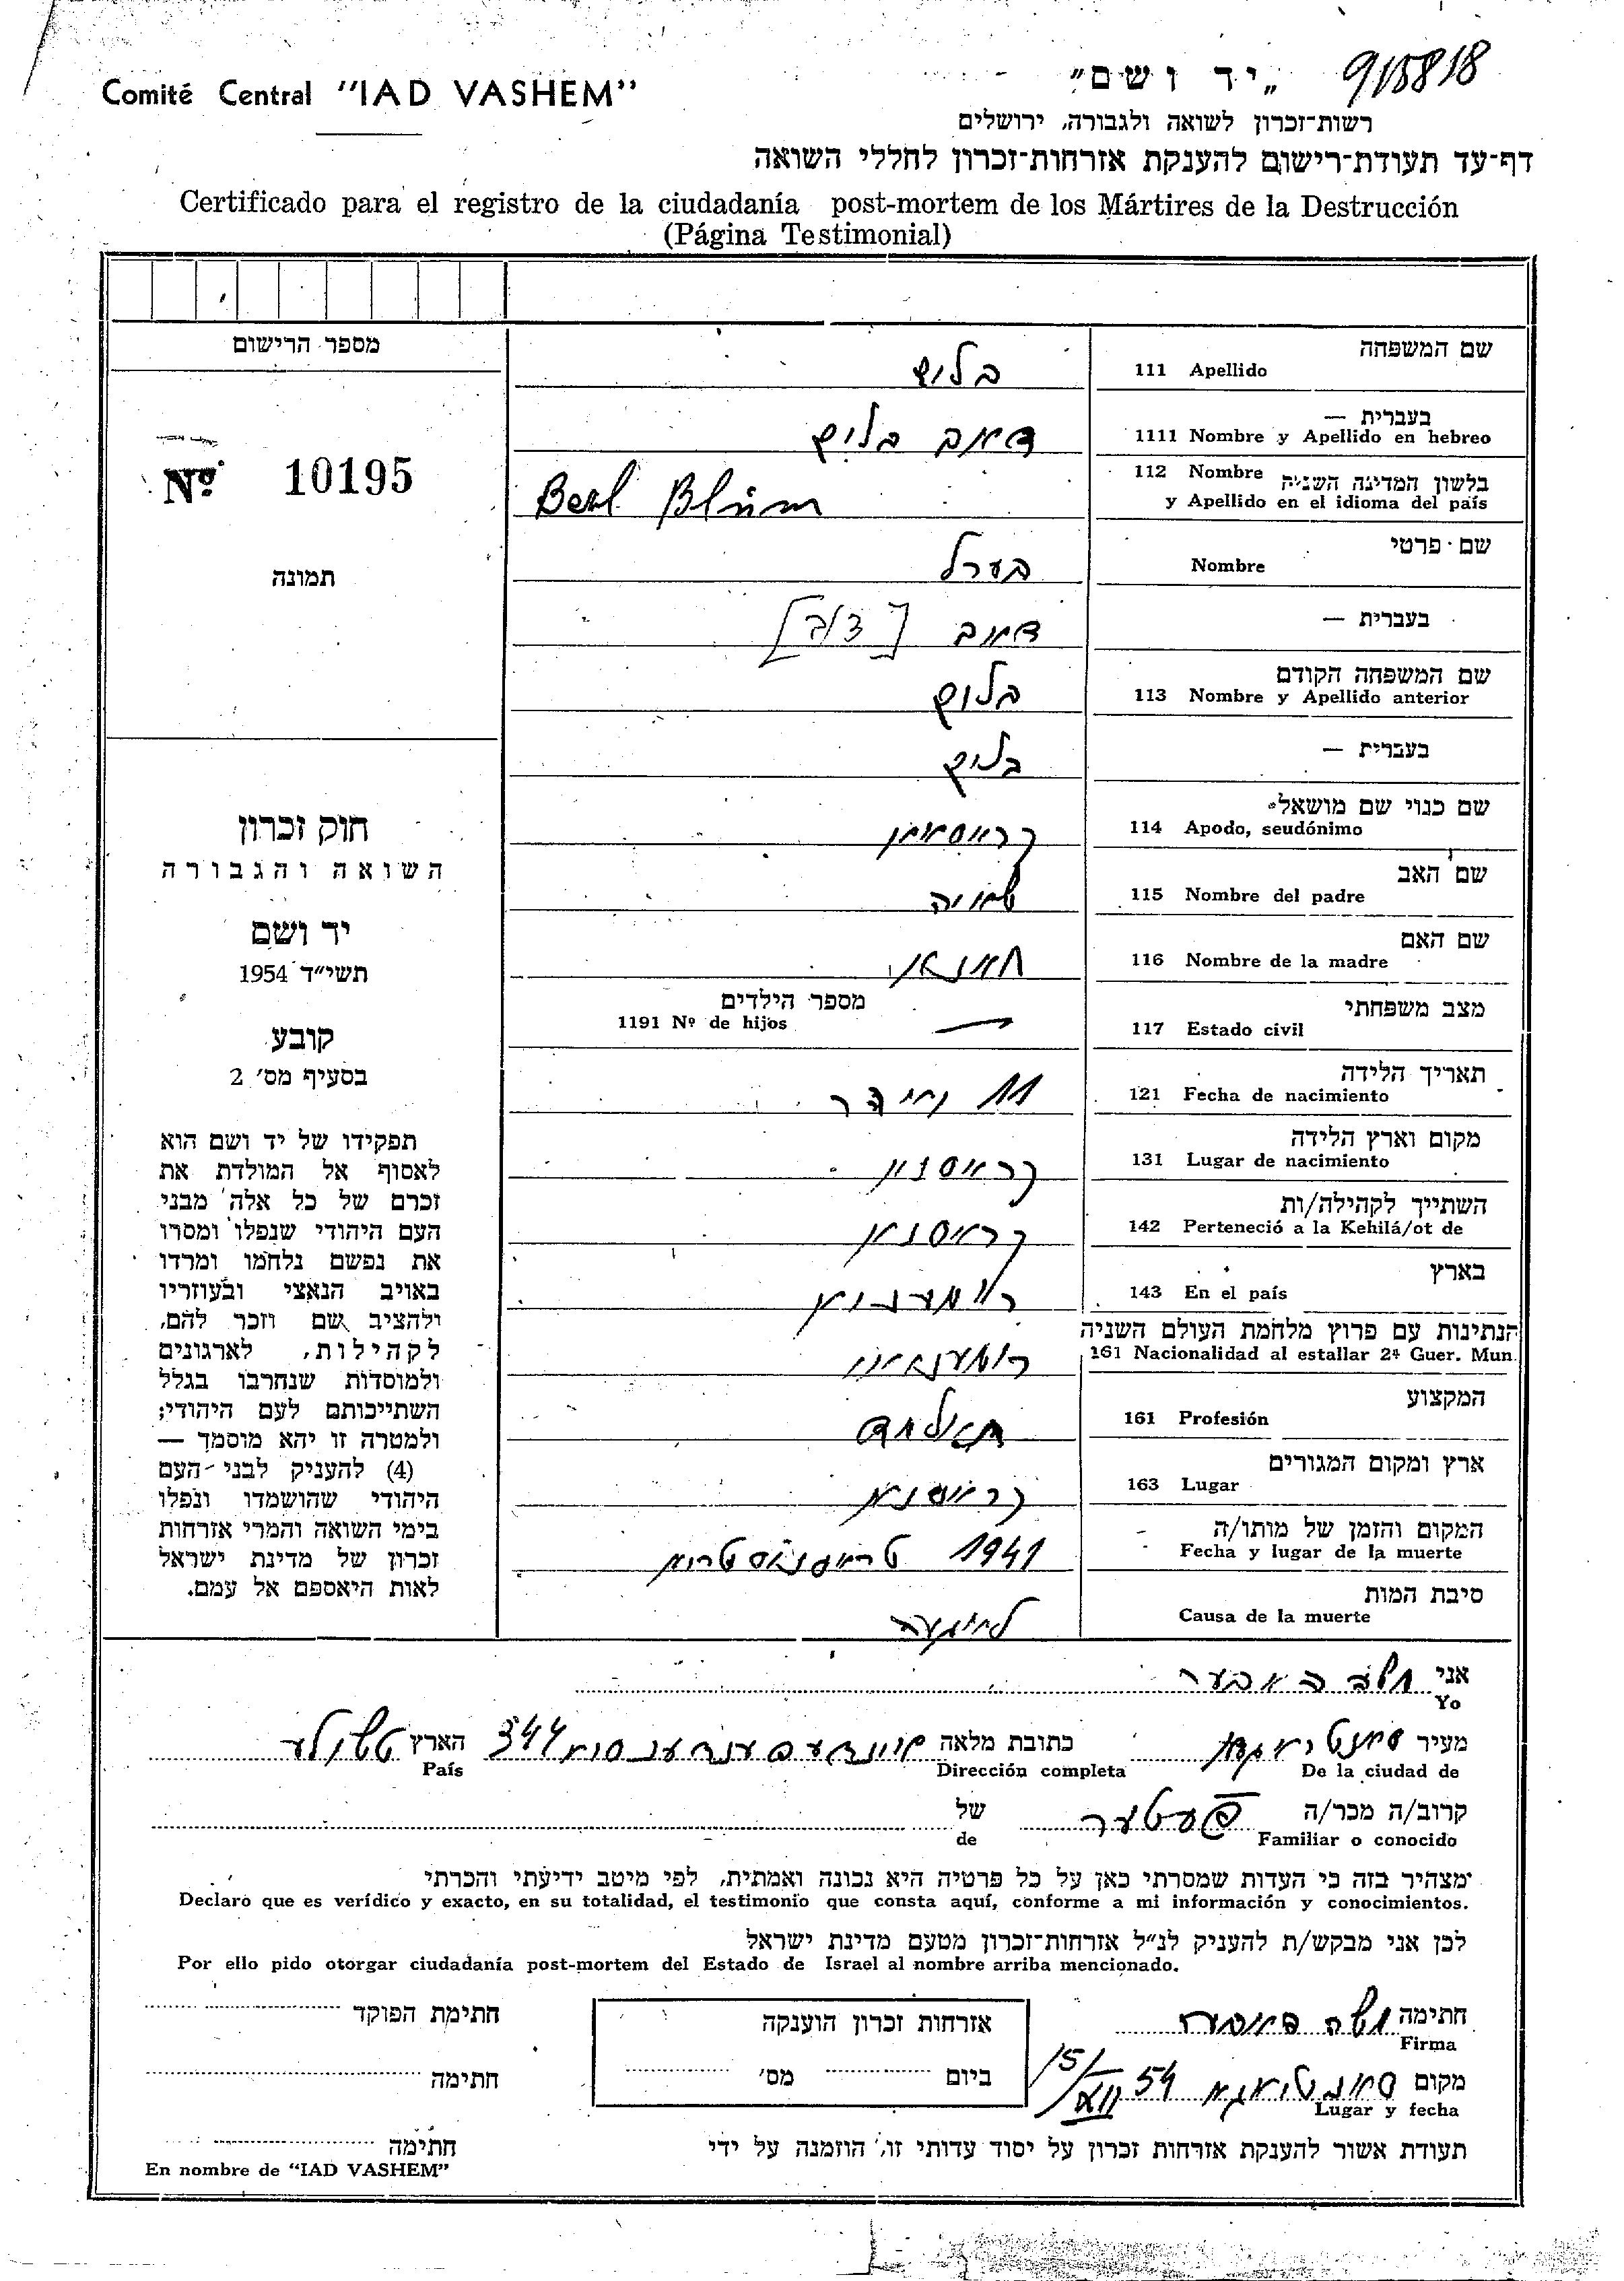 Comité Central "IAD VASHEM"
„יד ושם"
915818
רשות־זכרון לשואה ולגבורה, ירושלים
דף־עד תעודת־רישום להענקת אזרחות־זכרון לחללי השואה
Certificado para el registro de la ciudadanía post-mortem de los Mártires de la Destrucción
(Página Testimonial)
מספר הרישום
Nº 10195
תמונה
חוק זכרון
השואה והגבורה
יד ושם
תשי״ד 1954
קובע
בסעיף מס׳ 2
תפקידו של יד ושם הוא
לאסוף אל המולדת את
זכרם של כל אלה מבני
העם היהודי שנפלו ומסרו
את נפשם נלחמו ומרדו
באויב הנאצי ובעוזריו
ולהציב שם וזכר להם,
לקהילות, לארגונים
ולמוסדות שנחרבו בגלל
השתייכותם לעם היהודי;
ולמטרה זו יהא מוסמך —
(4) להעניק לבני־העם
היהודי שהושמדו ונפלו
בימי השואה והמרי אזרחות
זכרון של מדינת ישראל
לאות היאספם אל עמם.
שם המשפחה
111 Apellido
בלום
בעברית —
1111 Nombre y Apellido en hebreo
דאב בלום
112 Nombre בלשון המדינה השניה
y Apellido en el idioma del país
Berl Blum
שם פרטי
Nombre
בערל
בעברית —
דאב [דב]
שם המשפחה הקודם
113 Nombre y Apellido anterior
בלום
בעברית —
בלום
שם כנוי שם מושאל
114 Apodo, seudónimo
שם האב
115 Nombre del padre
שם האם
116 Nombre de la madre
מצב משפחתי
117 Estado civil
מספר הילדים
1191 Nº de hijos
—
תאריך הלידה
121 Fecha de nacimiento
11
מקום וארץ הלידה
131 Lugar de nacimiento
השתייך לקהילה/ות
142 Perteneció a la Kehilá/ot de
בארץ
143 En el país
הנתינות עם פרוץ מלחמת העולם השניה
161 Nacionalidad al estallar 2ª Guer. Mun.
המקצוע
161 Profesión
ארץ ומקום המגורים
163 Lugar
המקום והזמן של מותו/ה
Fecha y lugar de la muerte
1941
סיבת המות
Causa de la muerte
אני
Yo
מעיר
De la ciudad de
כתובת מלאה 344
Dirección completa
הארץ
País
קרוב/ה מכר/ה
Familiar o conocido
פעטער
של
de
מצהיר בזה כי העדות שמסרתי כאן על כל פרטיה היא נכונה ואמתית, לפי מיטב ידיעתי והכרתי
Declaro que es verídico y exacto, en su totalidad, el testimonio que consta aquí, conforme a mi información y conocimientos.
לכן אני מבקש/ת להעניק לנ״ל אזרחות־זכרון מטעם מדינת ישראל
Por ello pido otorgar ciudadanía post-mortem del Estado de Israel al nombre arriba mencionado.
חתימה
Firma
מקום 15/XII 54
Lugar y fecha
אזרחות זכרון הוענקה
ביום מס׳
חתימת הפוקד
חתימה
חתימה
En nombre de "IAD VASHEM"
תעודת אשור להענקת אזרחות זכרון על יסוד עדותי זו, הוזמנה על ידי